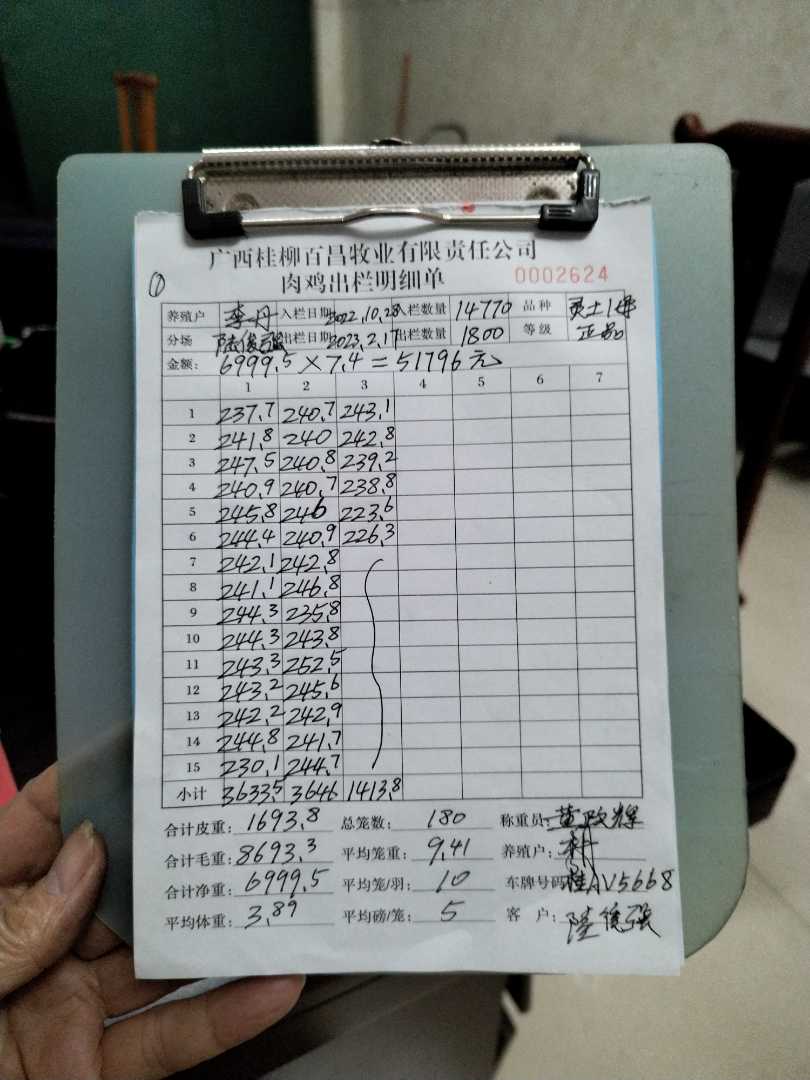 广西桂柳百昌牧业有限责任公司
① 肉鸡出栏明细单 0002624
养殖户 李丹 入栏日期 2022,10,28 入栏数量 14770 品种
分场 陆俊强 出栏日期 2023,2,17 出栏数量 1800 等级 正品
金额: 6999.5×7.4=51796元
1 2 3 4 5 6 7
1 237.7 240.7 243.1
2 241.8 240 242.8
3 247.5 240.8 239.2
4 240.9 240.7 238.8
5 245.8 246 223.6
6 244.4 240.9 226.3
7 242.1 242.8
8 241.1 246.8
9 244.3 235.8
10 244.3 243.8
11 243.3 252.5
12 243.2 245.6
13 242.2 242.9
14 244.8 241.7
15 230.1 244.7
小计 3633.5 3646 1413.8
合计皮重: 1693.8 总笼数: 180 称重员: 黄政辉
合计毛重: 8693.3 平均笼重: 9.41 养殖户:
合计净重: 6999.5 平均笼/羽: 10 车牌号码: 桂AV5668
平均体重: 3.89 平均磅/笼: 5 客 户: 陆俊强